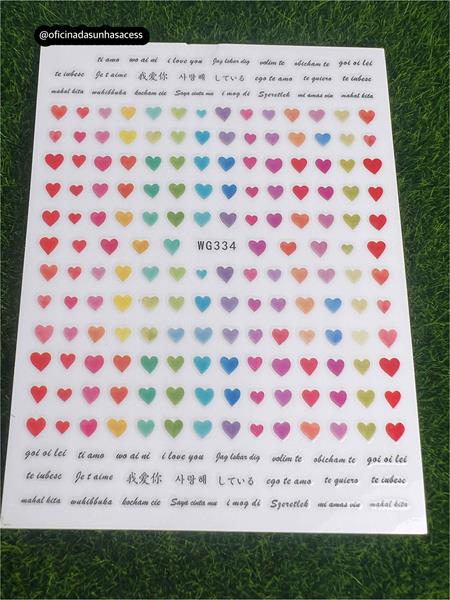 @oficinadasunhasacess
ti amo wo ai ni i love you Jag lskar dig volim te obicham te goi oi lei
te iubesc Je t aime 我爱你 사랑해 している ego te amo te quiero te iubesc
mahal kita wuhibbuka kocham cie Saya cinta mu i mog di Szeretlek mi amas vin mahal kita
WG334
goi oi lei ti amo wo ai ni i love you Jag lskar dig volim te obicham te goi oi lei
te iubesc Je t aime 我爱你 사랑해 している ego te amo te quiero te iubesc
mahal kita wuhibbuka kocham cie Saya cinta mu i mog di Szeretlek mi amas vin mahal kita